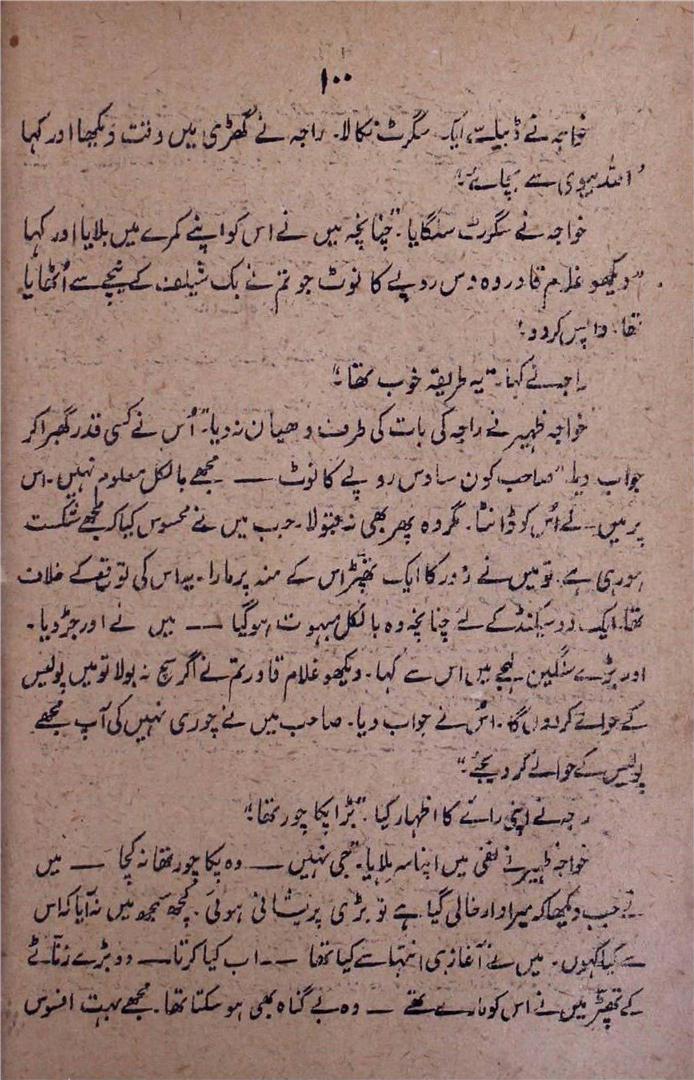 ۱۰۰
خواجہ نے ڈبیا سے ایک سگرٹ نکالا۔ راجہ نے گھڑی میں وقت دیکھا اور کہا
"اللہ بیوی سے بچائے۔"
خواجہ نے سگرٹ سلگایا۔ "چنانچہ میں نے اس کو اپنے کمرے میں بلایا اور کہا
"دیکھو غلام قادر وہ دس روپے کا نوٹ جو تم نے بک شیلف کے نیچے سے اُٹھایا
تھا۔ واپس کر دو!
راجہ نے کہا۔ "یہ طریقہ خوب تھا۔"
خواجہ ظہیر نے راجہ کی بات کی طرف دھیان نہ دیا۔ "اُس نے کسی قدر گھبرا کر
جواب دیا۔ "صاحب کون سا دس روپے کا نوٹ — مجھے بالکل معلوم نہیں۔ اس
پر میں نے اُس کو ڈانٹا۔ مگر وہ پھر بھی نہ قبولا۔ جب میں نے محسوس کیا کہ مجھے شکست
ہو رہی ہے۔ تو میں نے زور کا ایک تھپڑ اس کے منہ پر مارا۔ یہ اس کی توقع کے خلاف
تھا۔ ایک دو سیکنڈ کے لئے چنانچہ وہ بالکل مبہوت ہو گیا — میں نے اور جڑ دیا۔
اور بڑے سنگین لہجے میں اس سے کہا۔ دیکھو غلام قادر تم نے اگر سچ نہ بولا تو میں پولیس
کے حوالے کر دوں گا۔ اُس نے جواب دیا۔ صاحب میں نے چوری نہیں کی آپ مجھے
پولیس کے حوالے کر دیجئے۔"
راجہ نے اپنی رائے کا اظہار کیا۔ "بڑا پکا چور تھا!"
خواجہ ظہیر نے نفی میں اپنا سر ہلایا۔ "جی نہیں — وہ پکا چور تھا نہ کچا — میں
نے جب دیکھا کہ میرا وار خالی گیا ہے تو بڑی پریشانی ہوئی۔ کچھ سمجھ میں نہ آیا کہ اس
سے کیا کہوں۔ میں نے آغاز ہی انتہا سے کیا تھا — اب کیا کرتا — دو بڑے زناٹے
کے تھپڑ میں نے اس کو مارے تھے — وہ بے گناہ بھی ہو سکتا تھا۔ مجھے بہت افسوس